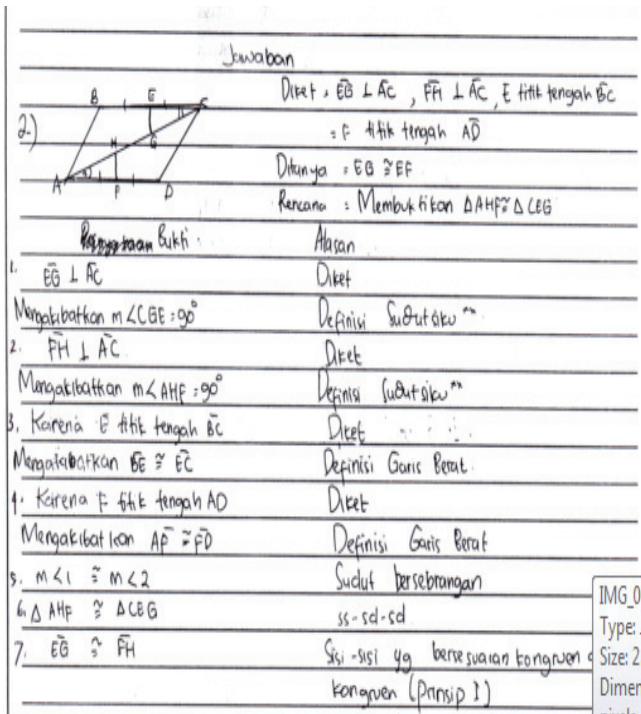 Jawaban
Diket : EG ⊥ AC , FH ⊥ AC, E titik tengah BC
: F titik tengah AD
2.)
B E C
H G
A F D
Ditanya : EG ≅ EF
Rencana : Membuktikan ΔAHF ≅ ΔCEG
Bukti : Alasan
1. EG ⊥ AC Diket
Mengakibatkan m∠CGE = 90° Definisi Sudut siku"
2. FH ⊥ AC Diket
Mengakibatkan m∠AHF = 90° Definisi Sudut siku"
3. Karena E titik tengah BC Diket
Mengakibatkan BE ≅ EC Definisi Garis Berat
4. Karena F titik tengah AD Diket
Mengakibatkan AF ≅ FD Definisi Garis Berat
5. m∠1 ≅ m∠2 Sudut bersebrangan
6. Δ AHF ≅ ΔCEG ss-sd-sd
7. EG ≅ FH Sisi-sisi yg bersesuaian kongruen
kongruen (Prinsip I)
IMG_0
Type:
Size: 2
Dimer